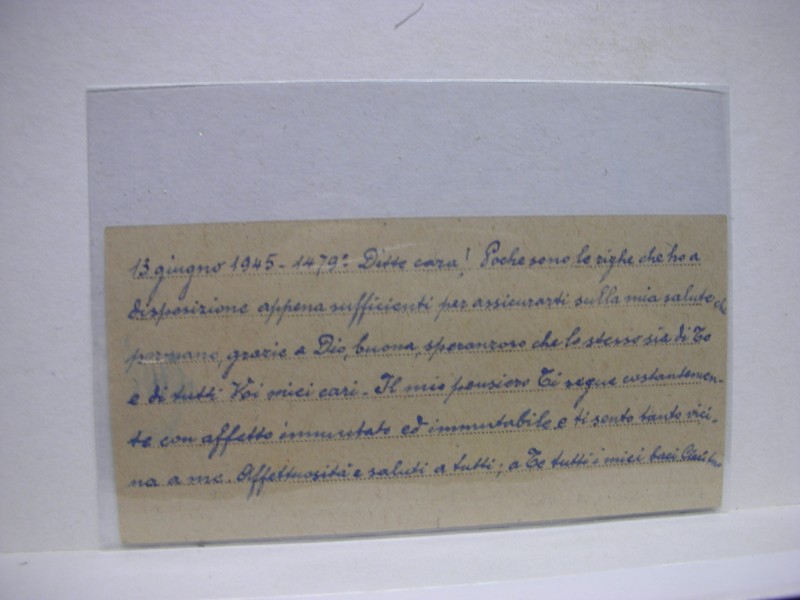 13 giugno 1945 - 1479° Ditte cara! Poche sono le righe che ho a
disposizione appena sufficienti per assicurarti sulla mia salute che
permane, grazie a Dio, buona, speranzoso che lo stesso sia di Te
e di tutti Voi miei cari - Il mio pensiero Ti segue costantemen-
te con affetto immutato ed immutabile e ti sento tanto vici-
na a me. Affettuosità e saluti a tutti; a Te tutti i miei baci